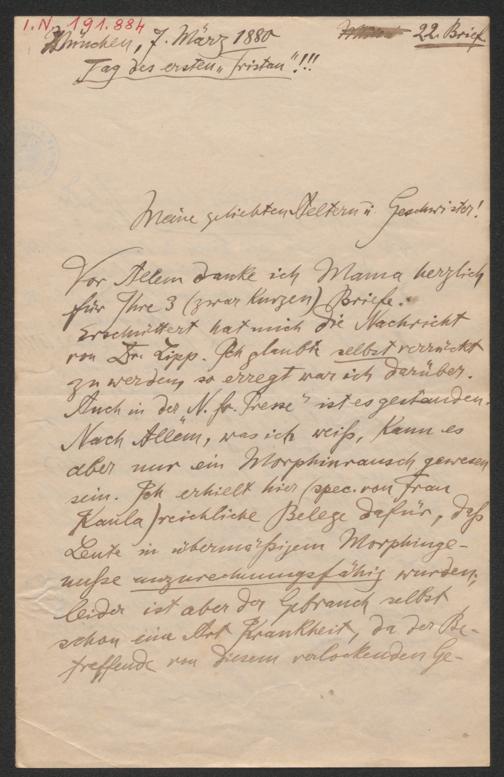 I.N. 191.884
München, 7. März 1880
22. Brief
Tag des ersten „Tristan"!!!
Meine geliebten Aeltern u. Geschwister!
Vor Allem danke ich Mama herzlich
für Ihre 3 (zwar kurzen) Briefe.
Erschüttert hat mich die Nachricht
von Dr. Zipp. Ich glaubte selbst verrückt
zu werden, so erregt war ich darüber.
Auch in der „N. fr. Presse" ist es gestanden.
Nach Allem, was ich weiß, kann es
aber nur ein Morphinrausch gewesen
sein. Ich erhielt hier (spec. von Frau
Kaula) reichliche Belege dafür, daß
Leute in übermäßigem Morphinge-
nuße unzurechnungsfähig wurden,
leider ist aber der Gebrauch selbst
schon eine Art Krankheit, da der Be-
treffende von diesem verlockenden Ge-